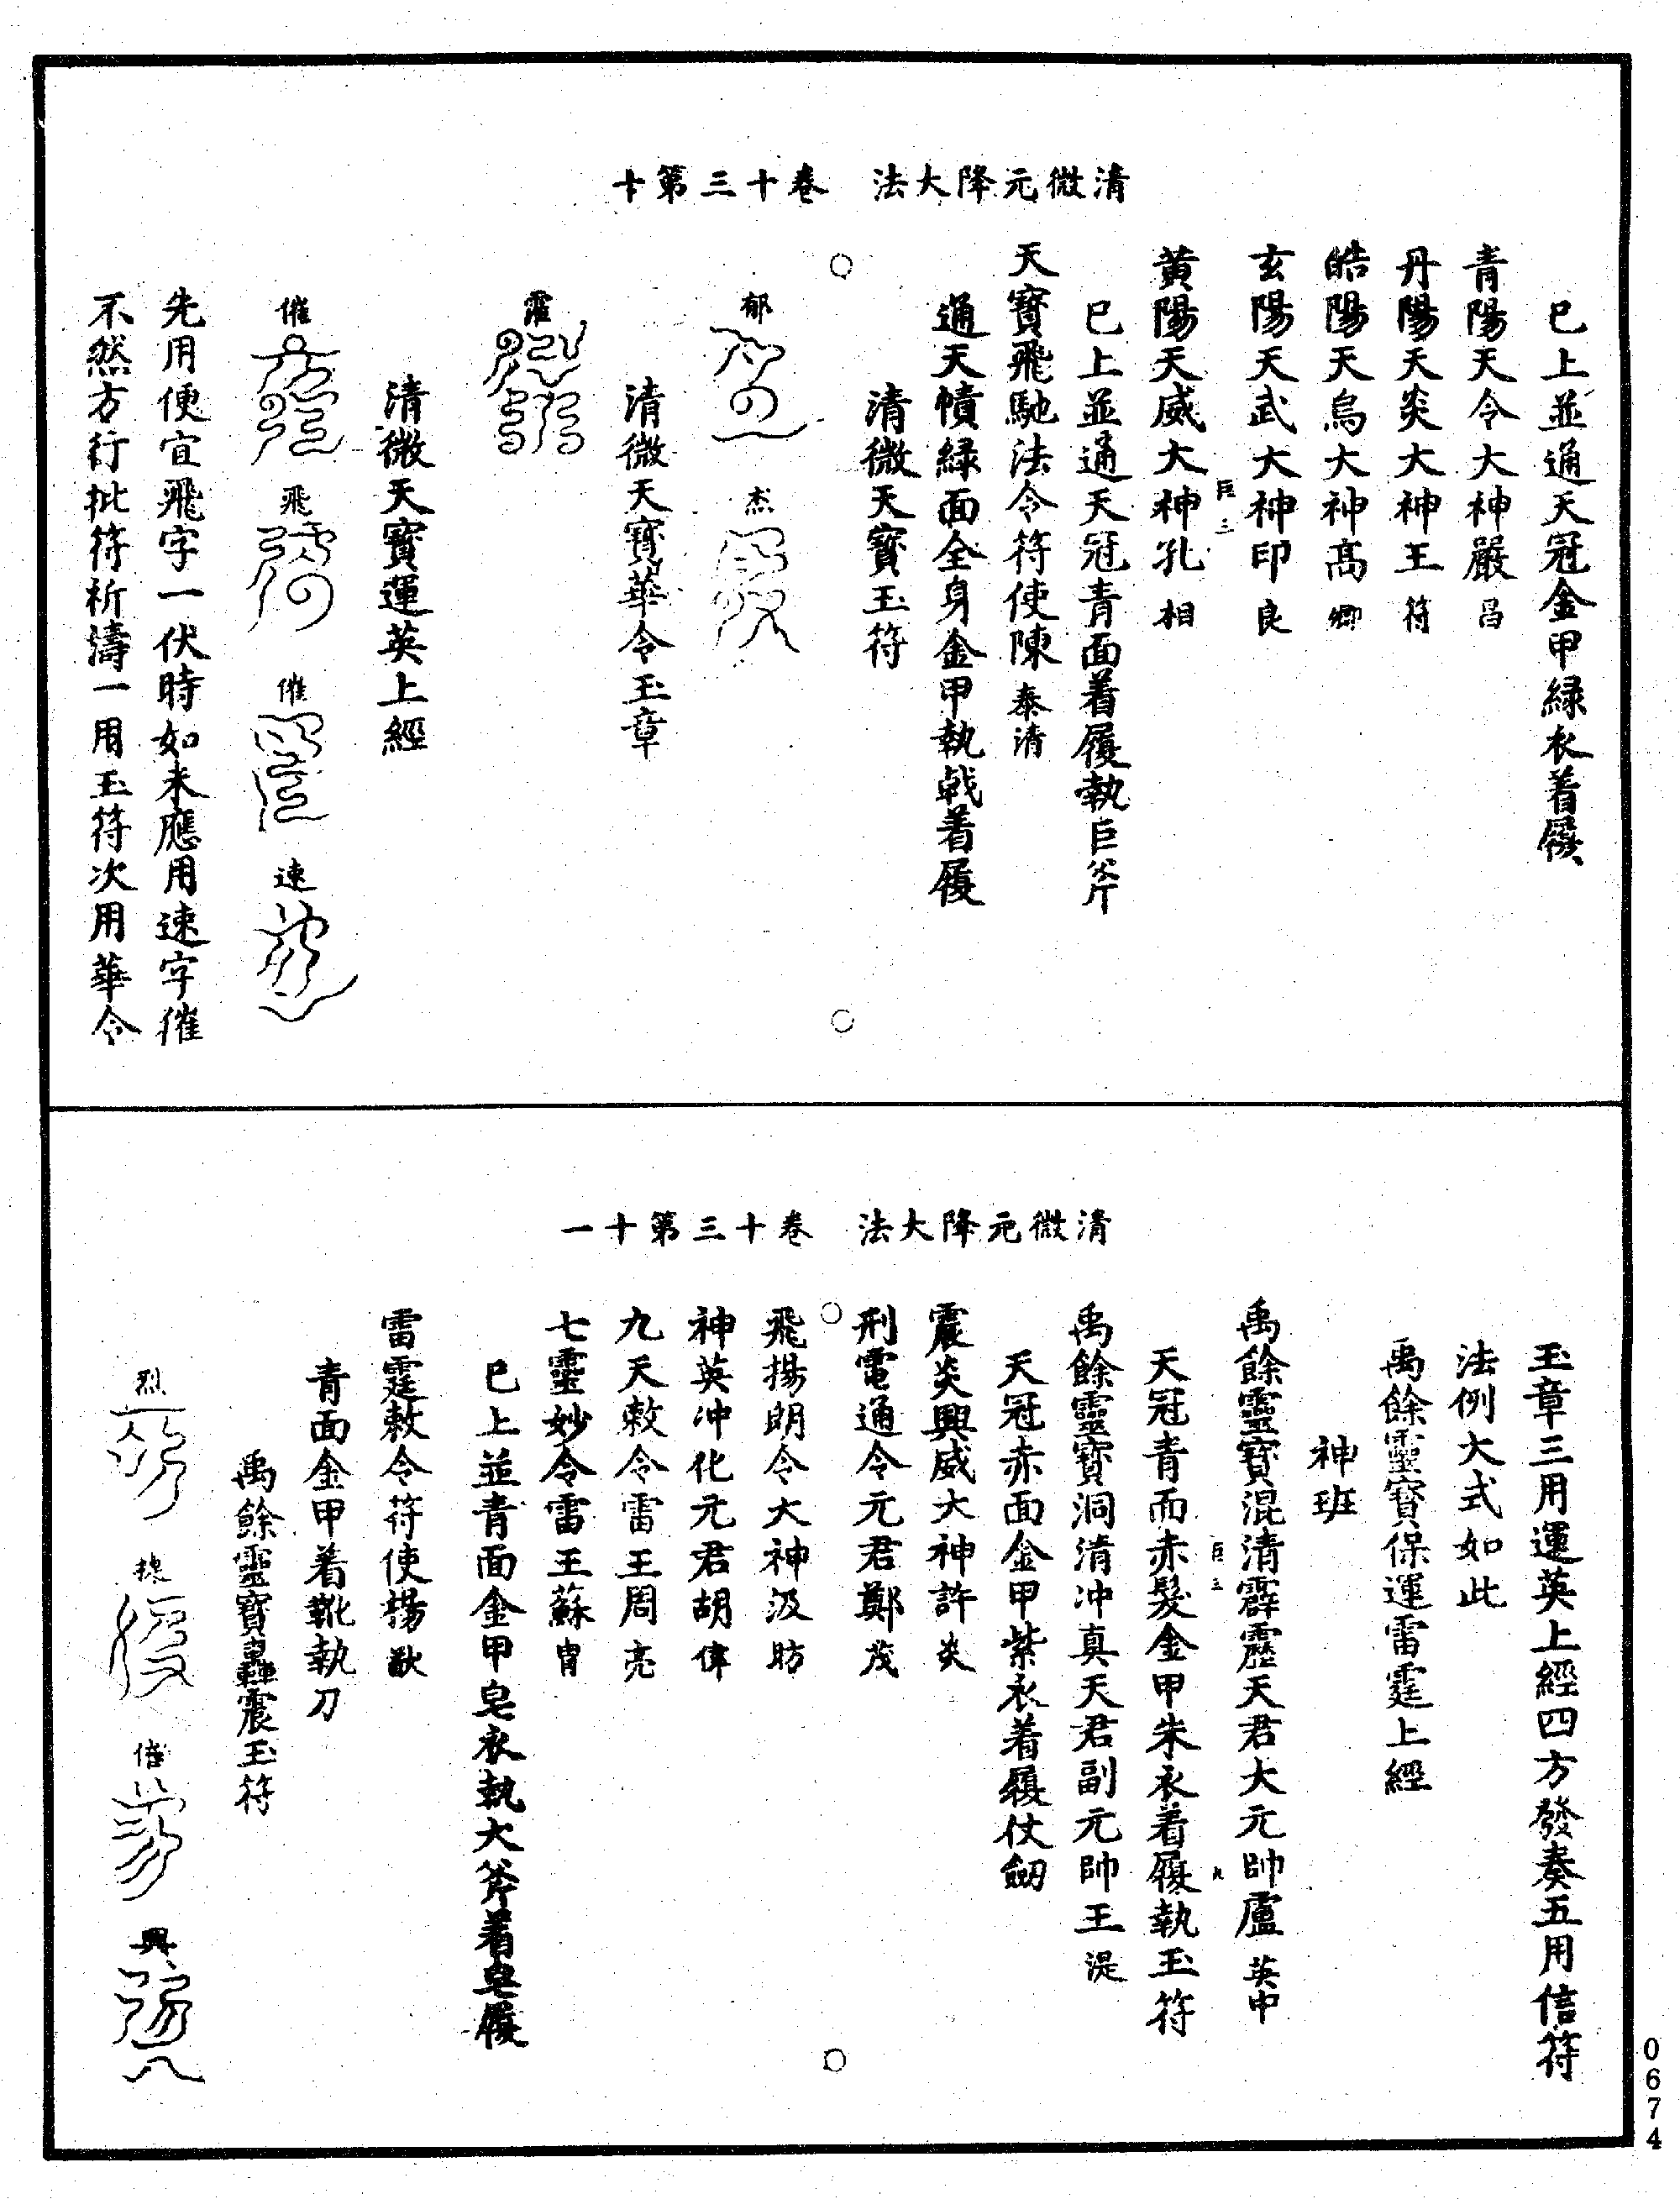 清微元降大法　卷十三第十
已上並通天冠金甲緑衣着履
青陽天令大神嚴昌
丹陽天炎大神王符
皓陽天烏大神高卿
玄陽天武大神印良
巨三
黃陽天威大神孔相
已上並通天冠青面着履執巨斧
天寶飛馳法令符使陳泰清
通天幘緑面全身金甲執戟着履
清微天寶玉符
郁
杰
清微天寶華令玉章
霍
清微天寶運英上經
催
飛
催
速
先用便宜飛字一伏時如未應用速字催
不然方行批符祈濤一用玉符次用華令
清微元降大法　卷十三第十一
玉章三用運英上經四方發奏五用信符
法例大式如此
禹餘靈寶保運雷霆上經
神班
禹餘靈寶混清霹靂天君大元帥盧英中
巨三
天冠青面赤髮金甲朱衣着履執玉符
禹餘靈寶洞淯冲真天君副元帥王湜
天冠赤面金甲紫衣着履仗劒
震炎興威大神許炎
刑電通令元君鄭茂
飛揚明令大神汲昉
神英冲化元君胡偉
九天敕令雷王周亮
七靈妙令雷王蘇胄
已上並青面金甲皂衣執大斧着皂履
雷霆敕令符使楊猷
青面金甲着靴執刀
禹餘靈寶轟震玉符
烈
倍
興
0674